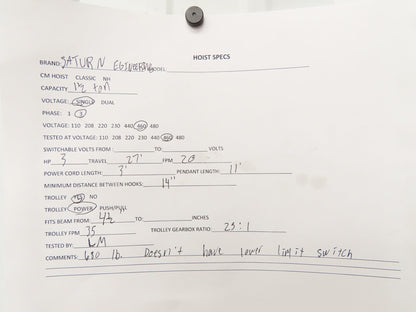 HOIST SPECS
BRAND: SATURN EGINEERING MODEL
CM HOIST CLASSIC NH
CAPACITY 1½ ton
VOLTAGE: SINGLE DUAL
PHASE: 1 3
VOLTAGE: 110 208 220 230 440 460 480
TESTED AT VOLTAGE: 110 208 220 230 440 460 480
SWITCHABLE VOLTS FROM: TO: VOLTS
HP 3 TRAVEL 27' FPM 20
POWER CORD LENGTH: 3' PENDANT LENGTH: 11'
MINIMUM DISTANCE BETWEEN HOOKS: 14"
TROLLEY YES NO
TROLLEY POWER PUSH/PULL
FITS BEAM FROM 4½ TO: INCHES
TROLLEY FPM 35 TROLLEY GEARBOX RATIO: 23:1
TESTED BY: LM
COMMENTS: lb. Doesn't have lower limit switch